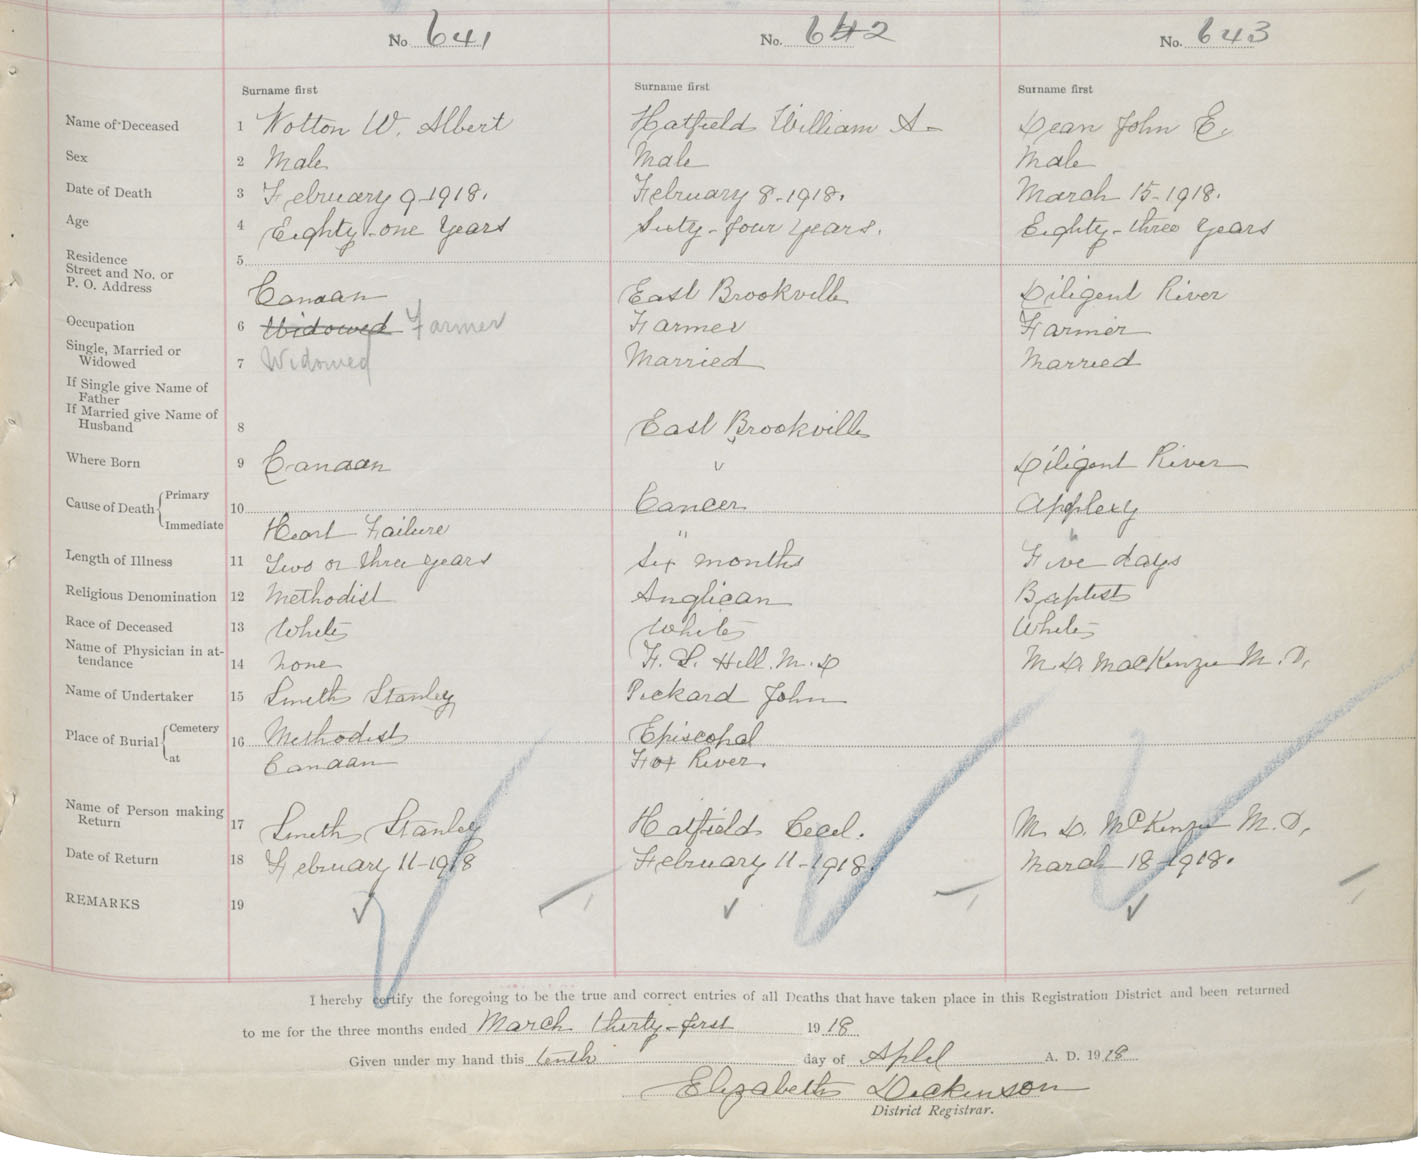 No 641 No. 642 No. 643
Surname first Surname first Surname first
Name of Deceased 1 Wotton W. Albert Hatfield William A- Dean John E.
Sex 2 Male Male Male
Date of Death 3 February 9-1918. February 8-1918. March 15-1918.
Age 4 Eighty-one Years Sixty-four Years. Eighty-three Years
Residence 5
Street and No. or
P. O. Address Canaan East Brookville Diligent River
Occupation 6 Widowed Farmer Farmer Farmer
Single, Married or
Widowed 7 Widowed Married Married
If Single give Name of
Father
If Married give Name of
Husband 8 East Brookville
Where Born 9 Canaan " Diligent River
Cause of Death Primary 10 Cancer Applexy
Immediate Heart Failure " "
Length of Illness 11 Two or three years Six months Five days
Religious Denomination 12 Methodist Anglican Baptist
Race of Deceased 13 White White White
Name of Physician in at-
tendance 14 none F. L. Hill. M. D M. D. MacKenzie M. D.
Name of Undertaker 15 Smith Stanley Pickard John
Place of Burial Cemetery 16 Methodist Episcopal
at Canaan Fox River.
Name of Person making
Return 17 Smith Stanley Hatfield Cecel. M. D. McKenzie M. D.
Date of Return 18 February 11-1918 February 11-1918. March 18-1918.
REMARKS 19
I hereby certify the foregoing to be the true and correct entries of all Deaths that have taken place in this Registration District and been returned
to me for the three months ended March thirty-first 1918
Given under my hand this tenth day of Aplel A. D. 1918
Elizabeth Dickinson
District Registrar.